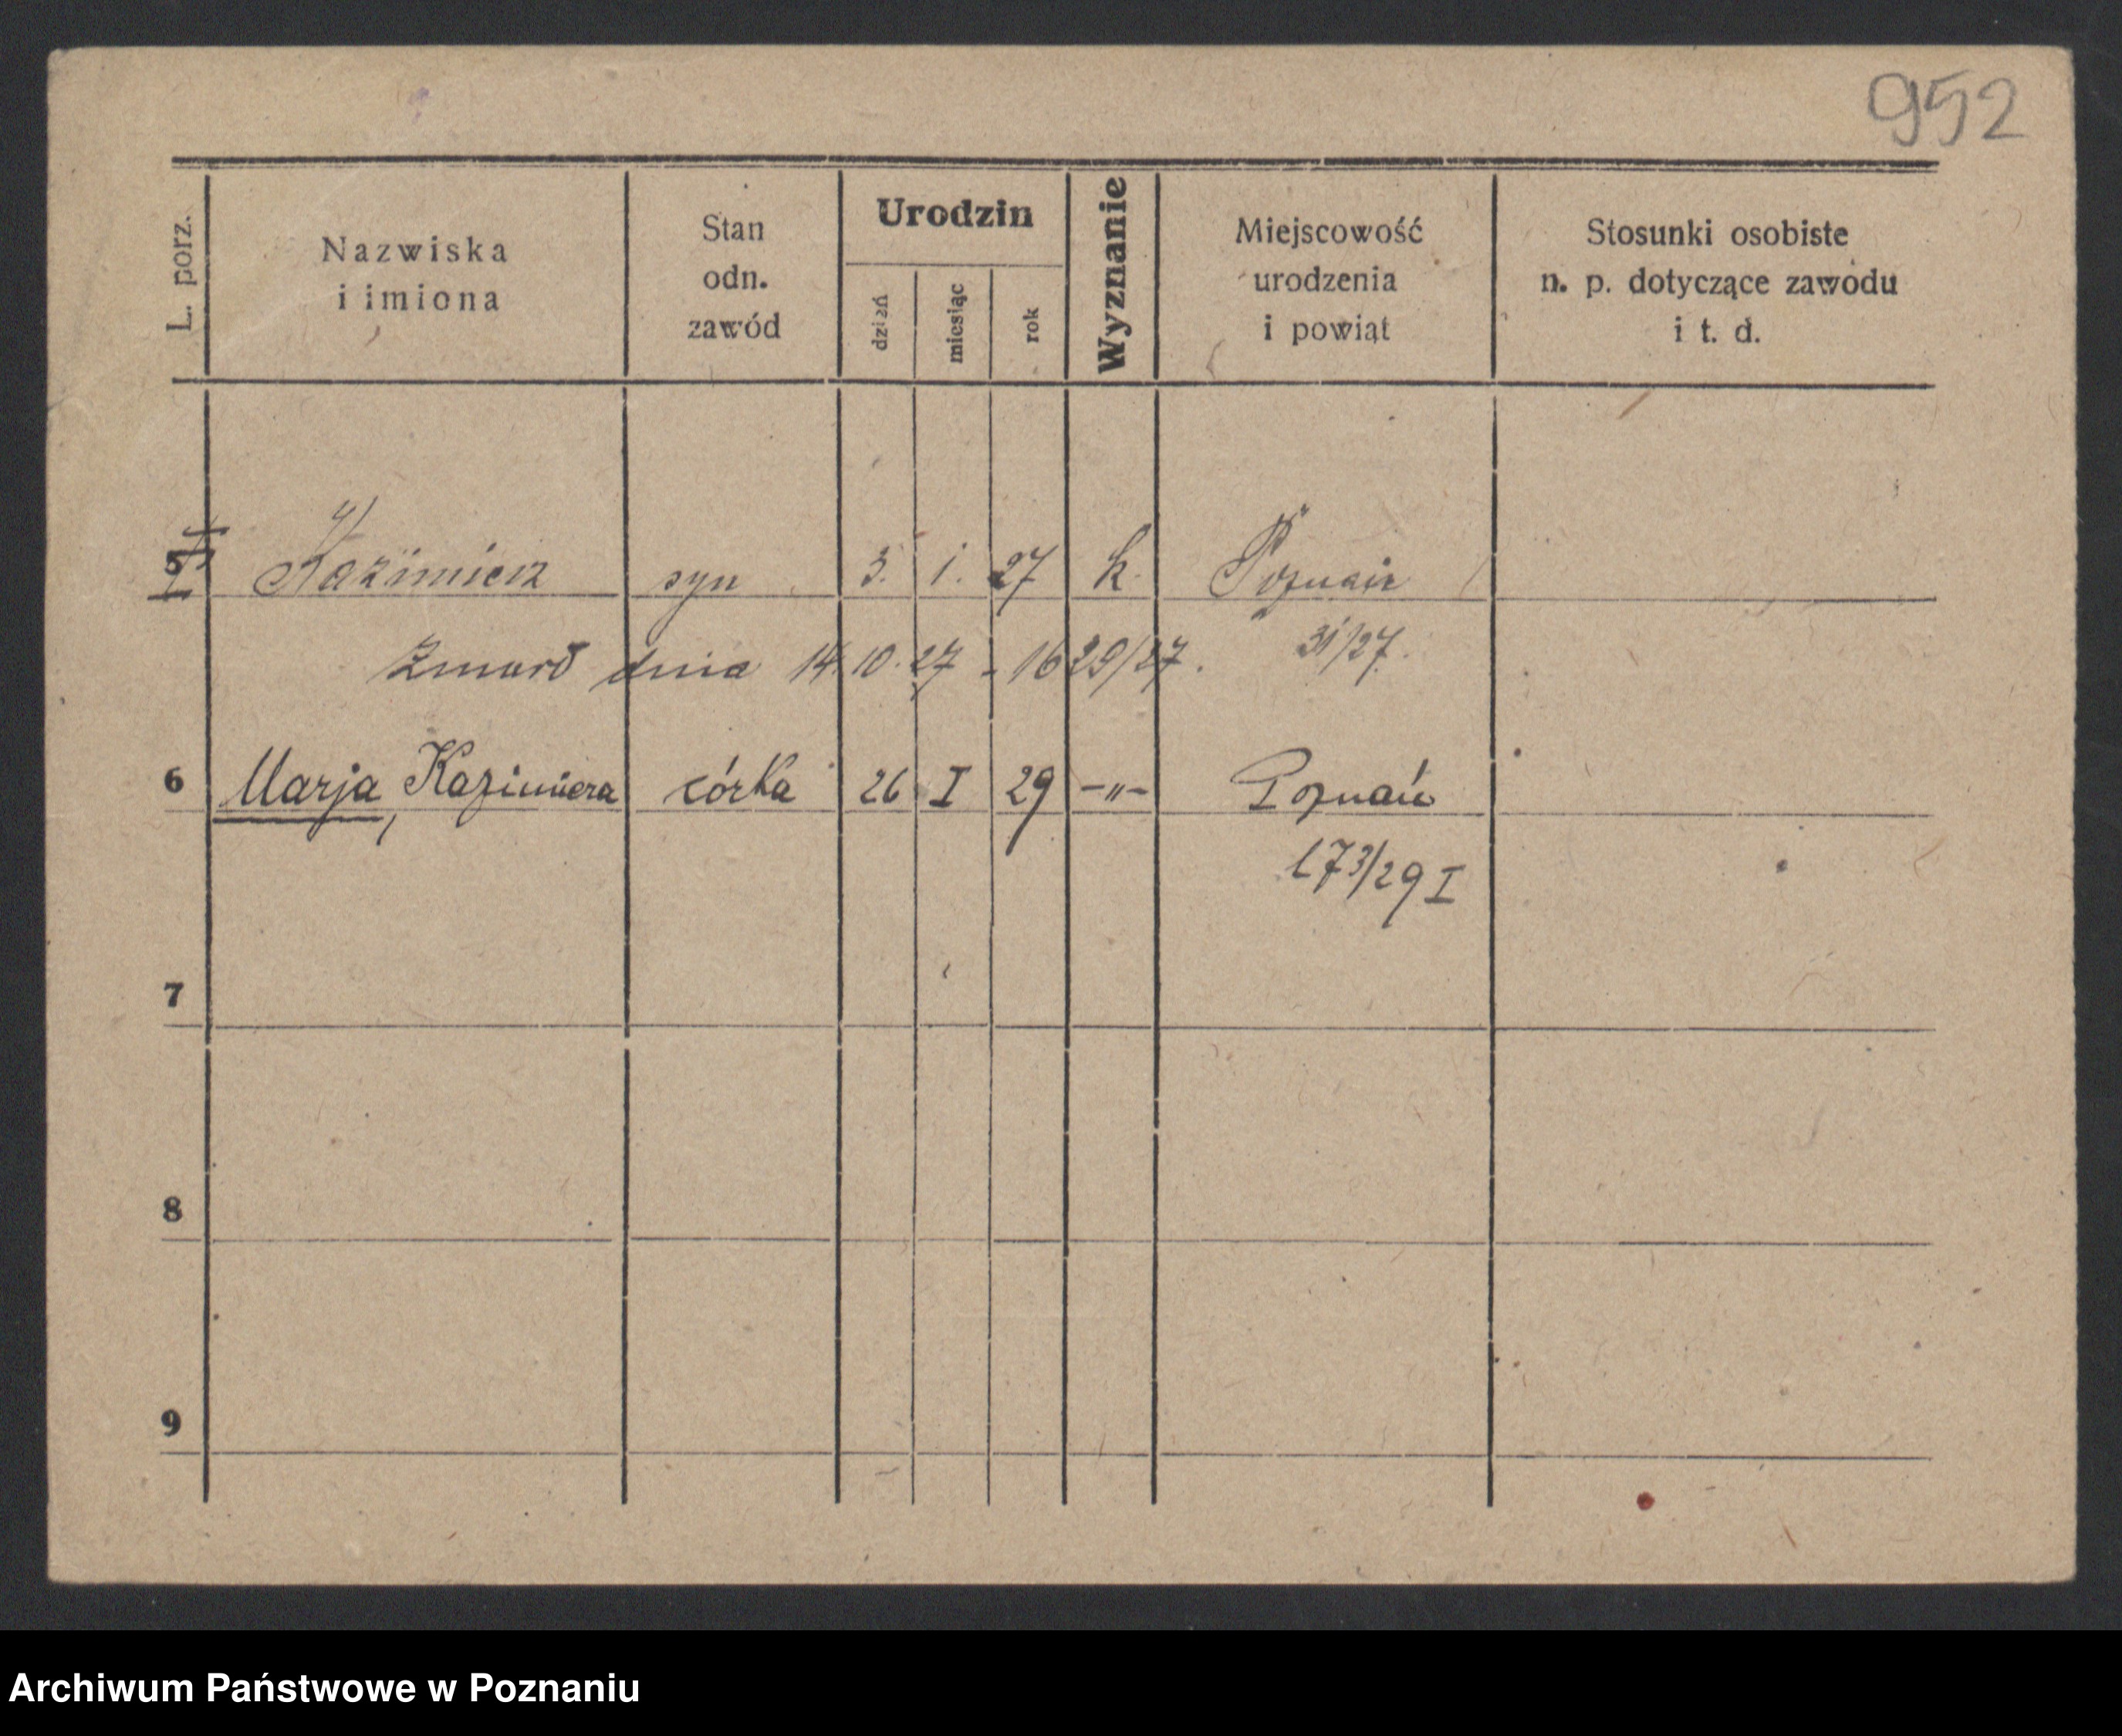 952
L. porz.
Nazwiska
i imiona
Stan
odn.
zawód
Urodzin
dzień
miesiąc
rok
Wyznanie
Miejscowość
urodzenia
i powiąt
Stosunki osobiste
n. p. dotyczące zawodu
i t. d.
5 Kazimierz syn 3. 1. 27 k. Poznań
zmarł dnia 14.10.27 - 1629/27. 31/27.
6 Marja, Kazimiera córka 26 I 29 -"- Poznań
173/29 I
7
8
9
Archiwum Państwowe w Poznaniu